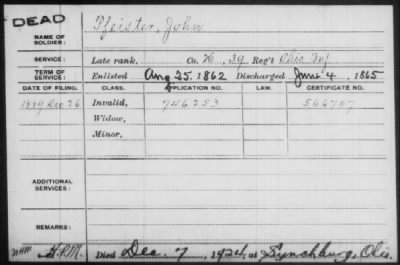 DEAD
Pfeister, John
NAME OF SOLDIER:
SERVICE: Late rank, Co. H, 39 Reg't Ohio Inf
TERM OF SERVICE: Enlisted Aug 25, 1862 Discharged June 4, 1865
DATE OF FILING. CLASS. APPLICATION NO. LAW. CERTIFICATE NO.
1889 Dec 26 Invalid, 746253
Widow,
Minor,
ADDITIONAL SERVICES:
REMARKS:
Died Dec. 7, 1924, at Lynchburg, Ohio.